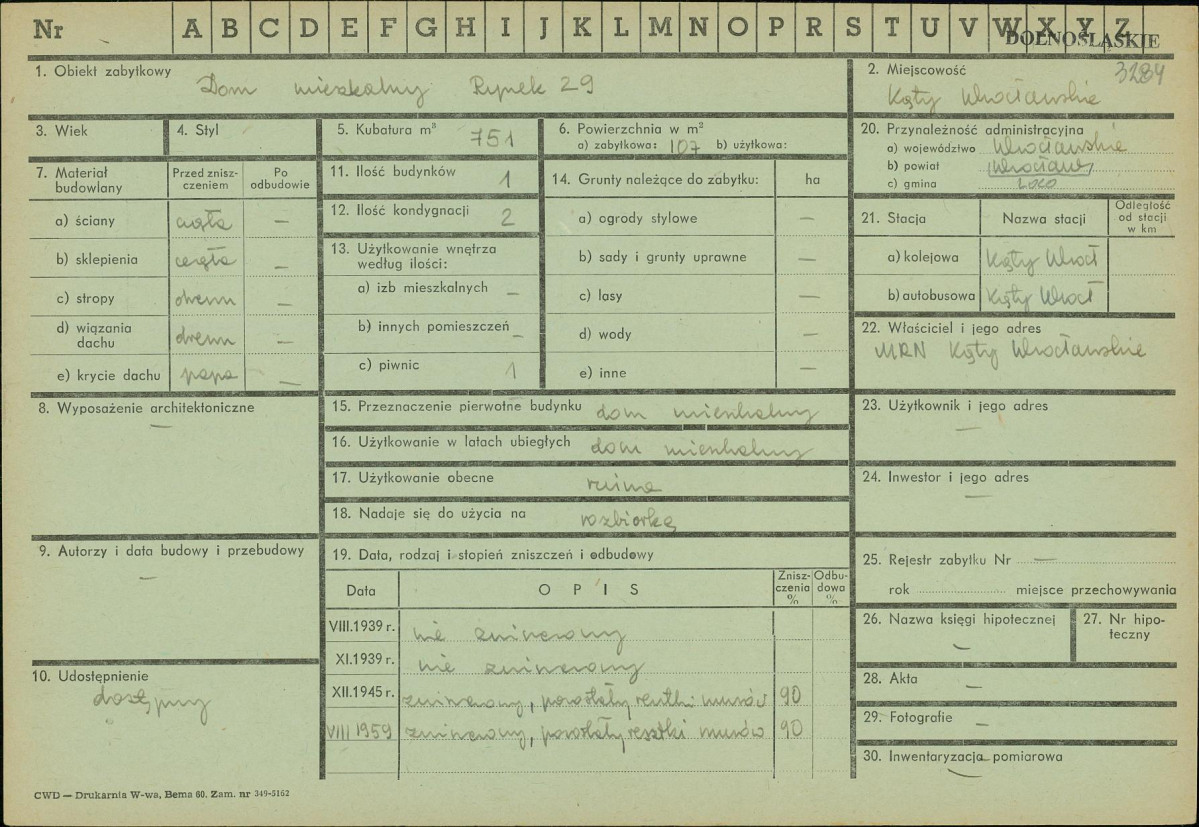 Nr A B C D E F G H I J K L M N O P R S T U V W X Y Z
DOLNOŚLĄSKIE
1. Obiekt zabytkowy
Dom mieszkalny Rynek 29
2. Miejscowość 3284
Kąty Wrocławskie
3. Wiek
4. Styl
5. Kubatura m³ 751
6. Powierzchnia w m²
a) zabytkowa: 107 b) użytkowa:
20. Przynależność administracyjna
a) województwo Wrocławskie
b) powiat Wrocław
c) gmina loco
7. Materiał budowlany
Przed znisz-
czeniem
Po
odbudowie
a) ściany cegła —
b) sklepienia cegła —
c) stropy drewn —
d) wiązania
dachu drewn —
e) krycie dachu papa —
11. Ilość budynków 1
12. Ilość kondygnacji 2
13. Użytkowanie wnętrza
według ilości:
a) izb mieszkalnych —
b) innych pomieszczeń —
c) piwnic 1
14. Grunty należące do zabytku: ha
a) ogrody stylowe —
b) sady i grunty uprawne —
c) lasy —
d) wody —
e) inne —
21. Stacja
Nazwa stacji
Odległość
od stacji
w km
a) kolejowa Kąty Wrocł
b) autobusowa Kąty Wrocł
22. Właściciel i jego adres
MRN Kąty Wrocławskie
8. Wyposażenie architektoniczne
—
15. Przeznaczenie pierwotne budynku dom mieszkalny
16. Użytkowanie w latach ubiegłych dom mieszkalny
17. Użytkowanie obecne ruina
18. Nadaje się do użycia na rozbiórkę
23. Użytkownik i jego adres
—
24. Inwestor i jego adres
—
9. Autorzy i data budowy i przebudowy
—
19. Data, rodzaj i stopień zniszczeń i odbudowy
Data
OPIS
Znisz-
czenia
%
Odbu-
dowa
%
VIII.1939 r. nie zniszczony
XI.1939 r. nie zniszczony
XII.1945 r. zniszczony, pozostały resztki murów 90
VIII 1959 zniszczony, pozostały resztki murów 90
10. Udostępnienie
dostępny
25. Rejestr zabytku Nr —
rok miejsce przechowywania
26. Nazwa księgi hipotecznej
—
27. Nr hipo-
teczny
28. Akta —
29. Fotografie —
30. Inwentaryzacja pomiarowa
—
CWD — Drukarnia W-wa, Bema 60. Zam. nr 349-5162